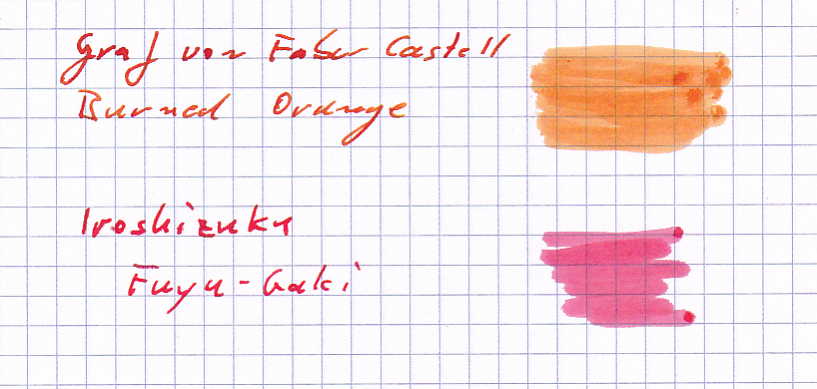 Graf von Faber Castell
Burned Orange
Iroshizuku
Fuyu-Gaki